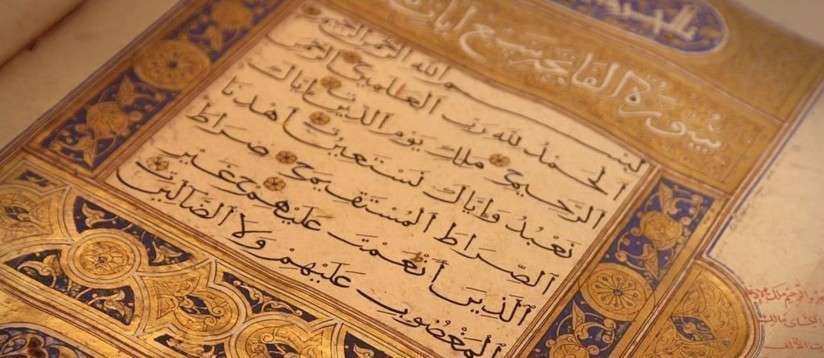 سورة الفاتحة سبع آيات
بسم الله الرحمن الرحيم
الحمد لله رب العلمين الرحمن
الرحيم ملك يوم الدين إياك
نعبد وإياك نستعين اهدنا
الصراط المستقيم صراط
الذين أنعمت عليهم غير
المغضوب عليهم ولا الضالين